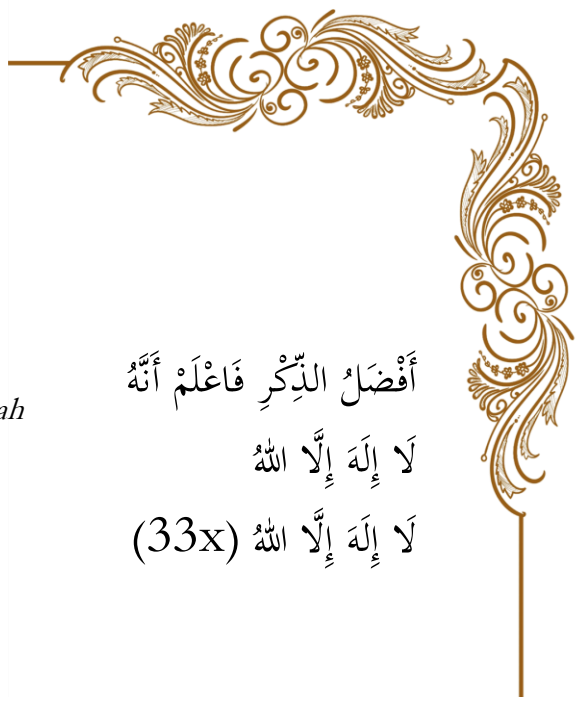 أَفْضَلُ الذِّكْرِ فَاعْلَمْ أَنَّهُ
ah
لَا إِلَهَ إِلَّا اللهُ
لَا إِلَهَ إِلَّا اللهُ (33x)